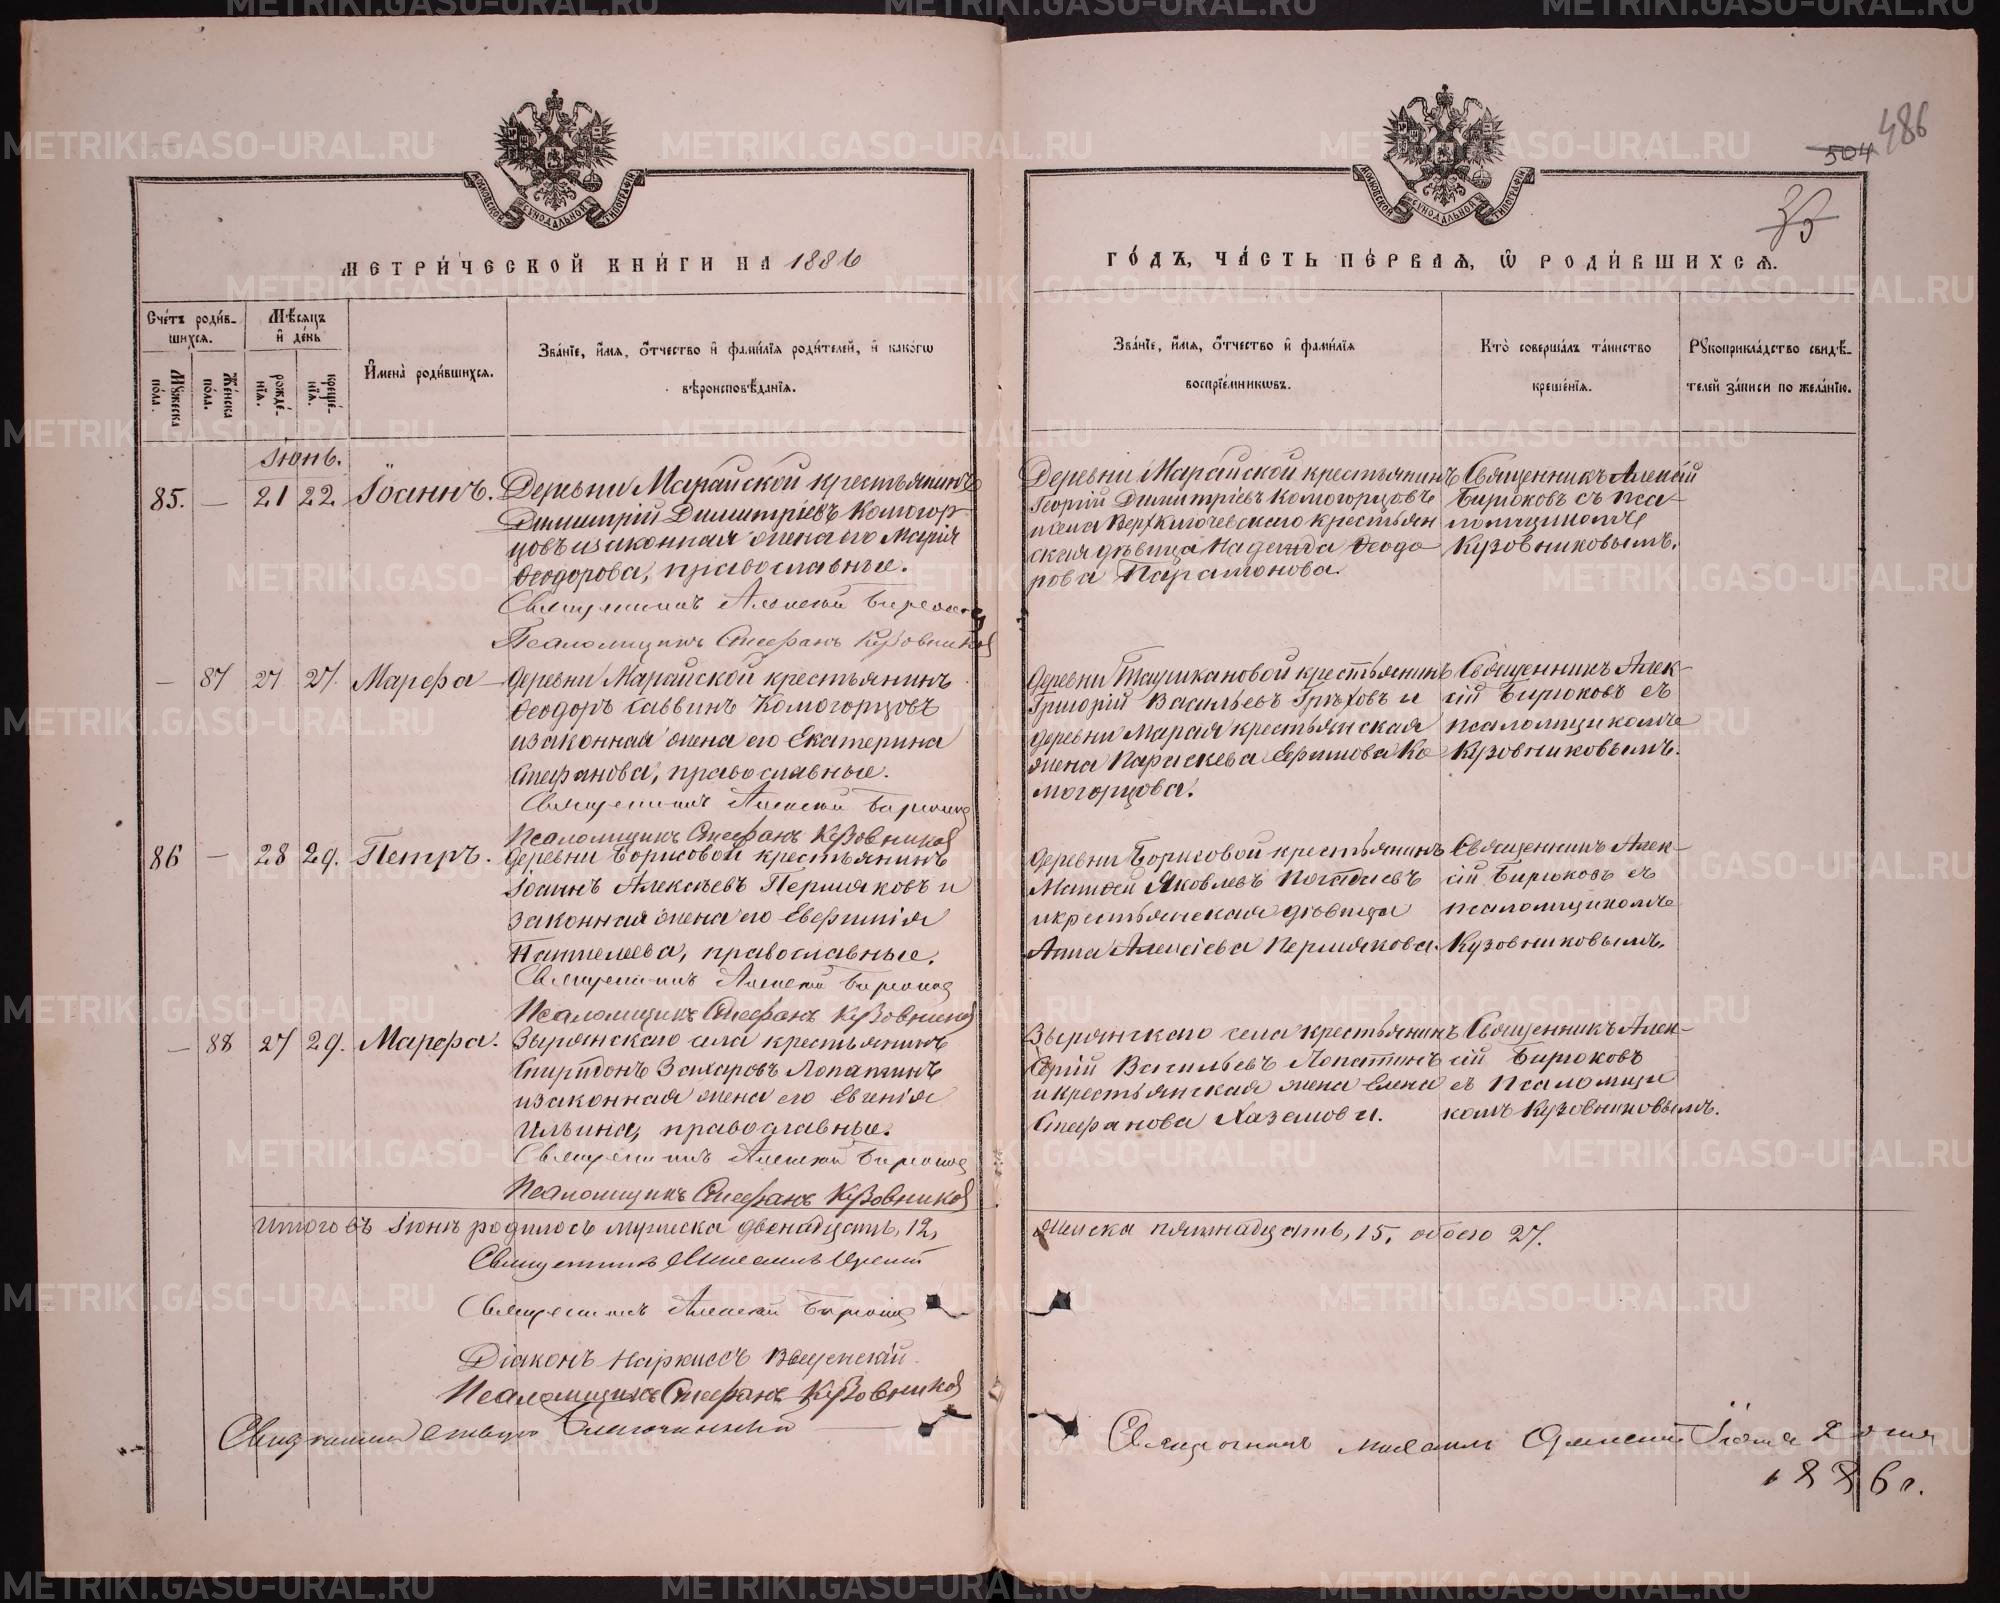 504 486
35
МОСКОВСКОЙ СѴНОДАЛЬНОЙ ТИПОГРАФІИ
МОСКОВСКОЙ СѴНОДАЛЬНОЙ ТИПОГРАФІИ
МЕТРИ́ЧЕСКОЙ КНИ́ГИ НА 1886
ГО́ДЪ, ЧА́СТЬ ПЕ́РВАЯ, Ѡ РОДИ́ВШИХСЯ.
Сче́тъ роди́в-
шихся.
Мѣ́сяцъ
и҆ де́нь
Мꙋжеска
пола.
Же́нска
пола.
рожде́-
нїя.
креще́-
нїя.
И҆мена̀ роди́вшихся.
Зва́нїе, и҆́мя, ѻ҆́тчество и҆ фами́лїя роди́телей, и҆ како́гѡ
вѣроисповѣ́данїя.
Зва́нїе, и҆́мя, ѻ҆́тчество и҆ фами́лїя
воспрїе́мникѡвъ.
Кто̀ соверша́лъ та́инство
креще́нїя.
Рꙋкоприкла́дство свидѣ́-
телей за́писи по жела́нїю.
Іюнь.
85. — 21 22 Іоаннъ.
Деревни Марайской крестьянинъ
Димитрій Димитріевъ Комогор-
цовъ и законная жена его Марія
Ѳеодорова, православные.
Священникъ Алексій Бирюков
Псаломщикъ Стефанъ Кузовников
Деревни Марайской крестьянинъ
Георгій Димитріевъ Комогорцовъ
и села Верхключевскаго крестьян
ская дѣвица Надежда Ѳеодо
рова Парамонова.
Священникъ Алексій
Бирюковъ съ пса-
ломщикомъ
Кузовниковымъ.
— 87 27 27. Марѳа —
деревни Марайской крестьянинъ
Ѳеодоръ Саввинъ Комогорцовъ
и законная жена его Екатерина
Стефанова, православные.
Священникъ Алексій Бирюков
Псаломщикъ Стефанъ Кузовников
деревни Ташкановой крестьянинъ
Григорій Васильевъ Грѣховъ и
деревни Марая крестьянская
жена Параскева Ефимова Ко
могорцова.
Священникъ Алек-
сій Бирюковъ съ
псаломщикомъ
Кузовниковымъ.
86 — 28 29. Петръ.
деревни Борисовой крестьянинъ
Іоаннъ Алексѣевъ Пермяковъ и
законная жена его Евфимія
Пантелеева, православные.
Священникъ Алексій Бирюков
Псаломщикъ Стефанъ Кузовников
деревни Борисовой крестьянинъ
Матѳей Яковлевъ
и крестьянская дѣвица
Анна Алексіева Пермякова.
Священникъ Алек-
сій Бирюковъ съ
псаломщикомъ
Кузовниковымъ.
— 88 27 29. Марѳа.
Зырянскаго села крестьянинъ
Спиридонъ Захаровъ Лопатинъ
и законная жена его Евгенія
Ильина, православные.
Священникъ Алексій Бирюков
Псаломщикъ Стефанъ Кузовников
Зырянскаго села крестьянинъ
Васильевъ Лопатинъ
и крестьянская жена Елена
Стефанова
Священникъ Алек-
сій Бирюковъ
съ Псаломщи
комъ Кузовниковымъ.
Итого въ Іюнѣ родилось мужеска двенадцать, 12,
женска пятнадцать, 15, обоего 27.
Священникъ Михаилъ
Священникъ Алексій Бирюков
Діаконъ Наркиссъ Введенскій
Псаломщикъ Стефанъ Кузовников
Благочинный
Священникъ Михаилъ Іюля 2 дня
1886 г.
METRIKI.GASO-URAL.RU